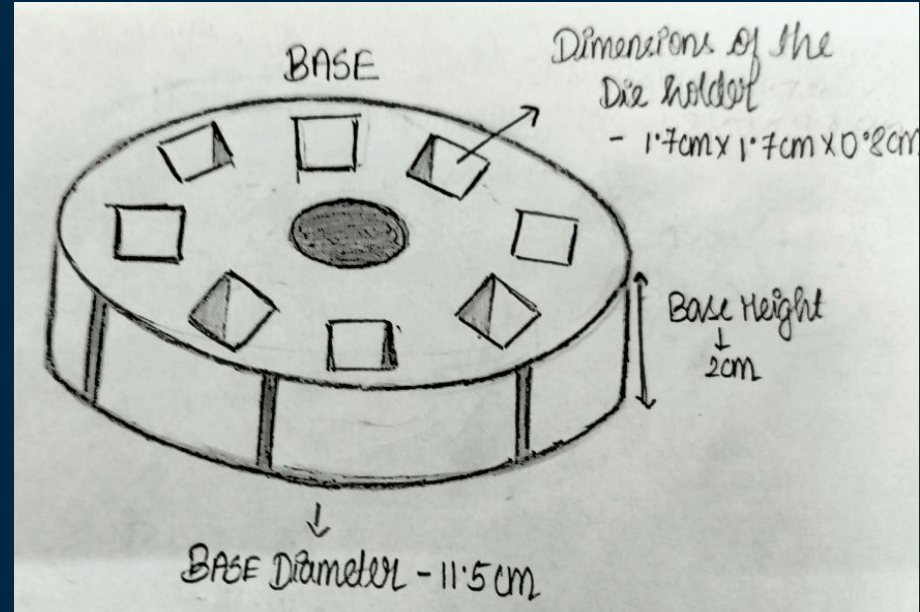 BASE
Dimensions of the
Die holder
- 1.7cm x 1.7cm x 0.8cm
Base Height
↓
2cm
↓
BASE Diameter - 11.5cm